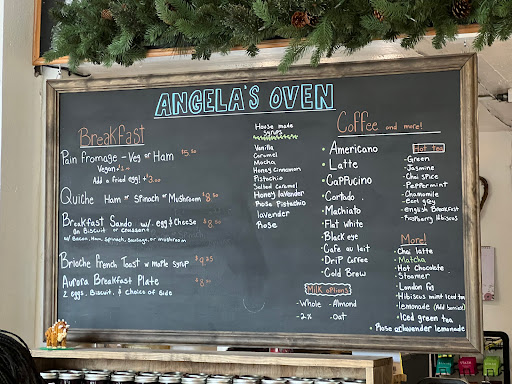 ANGELA'S OVEN
Breakfast
Pain Fromage - Veg or Ham $5.50
Vegan +
Add a fried egg! +$3.00
Quiche Ham or Spinach or Mushroom $8.50
Breakfast Sando w/ egg & Cheese
on Biscuit or Croissant
w/ Bacon, Ham, Spinach, Sausage, or mushroom
Brioche French Toast w/ Maple syrup $9.25
Aurora Breakfast Plate
2 eggs, Biscuit, & Choice of Side
House made
syrups
Vanilla
Caramel
Mocha
Honey Cinnamon
Pistachio
Salted Caramel
Honey lavender
Rose Pistachio
lavender
Rose
Coffee and more!
• Americano
• Latte
• Cappucino
• Cortado
• Machiato
• Flat white
• Black eye
• Cafe au lait
• Drip Coffee
• Cold Brew
Milk options
- Whole - Almond
- 2% - Oat
Hot tea
- Green
- Jasmine
- Chai Spice
- Peppermint
- Chamomile
- Earl grey
- english Breakfast
- Raspberry Hibiscus
More!
• Chai latte
• Matcha
• Hot Chocolate
• Steamer
• London fog
• Hibiscus mint Iced tea
• lemonade
• Iced green tea
• Rose or lavender lemonade